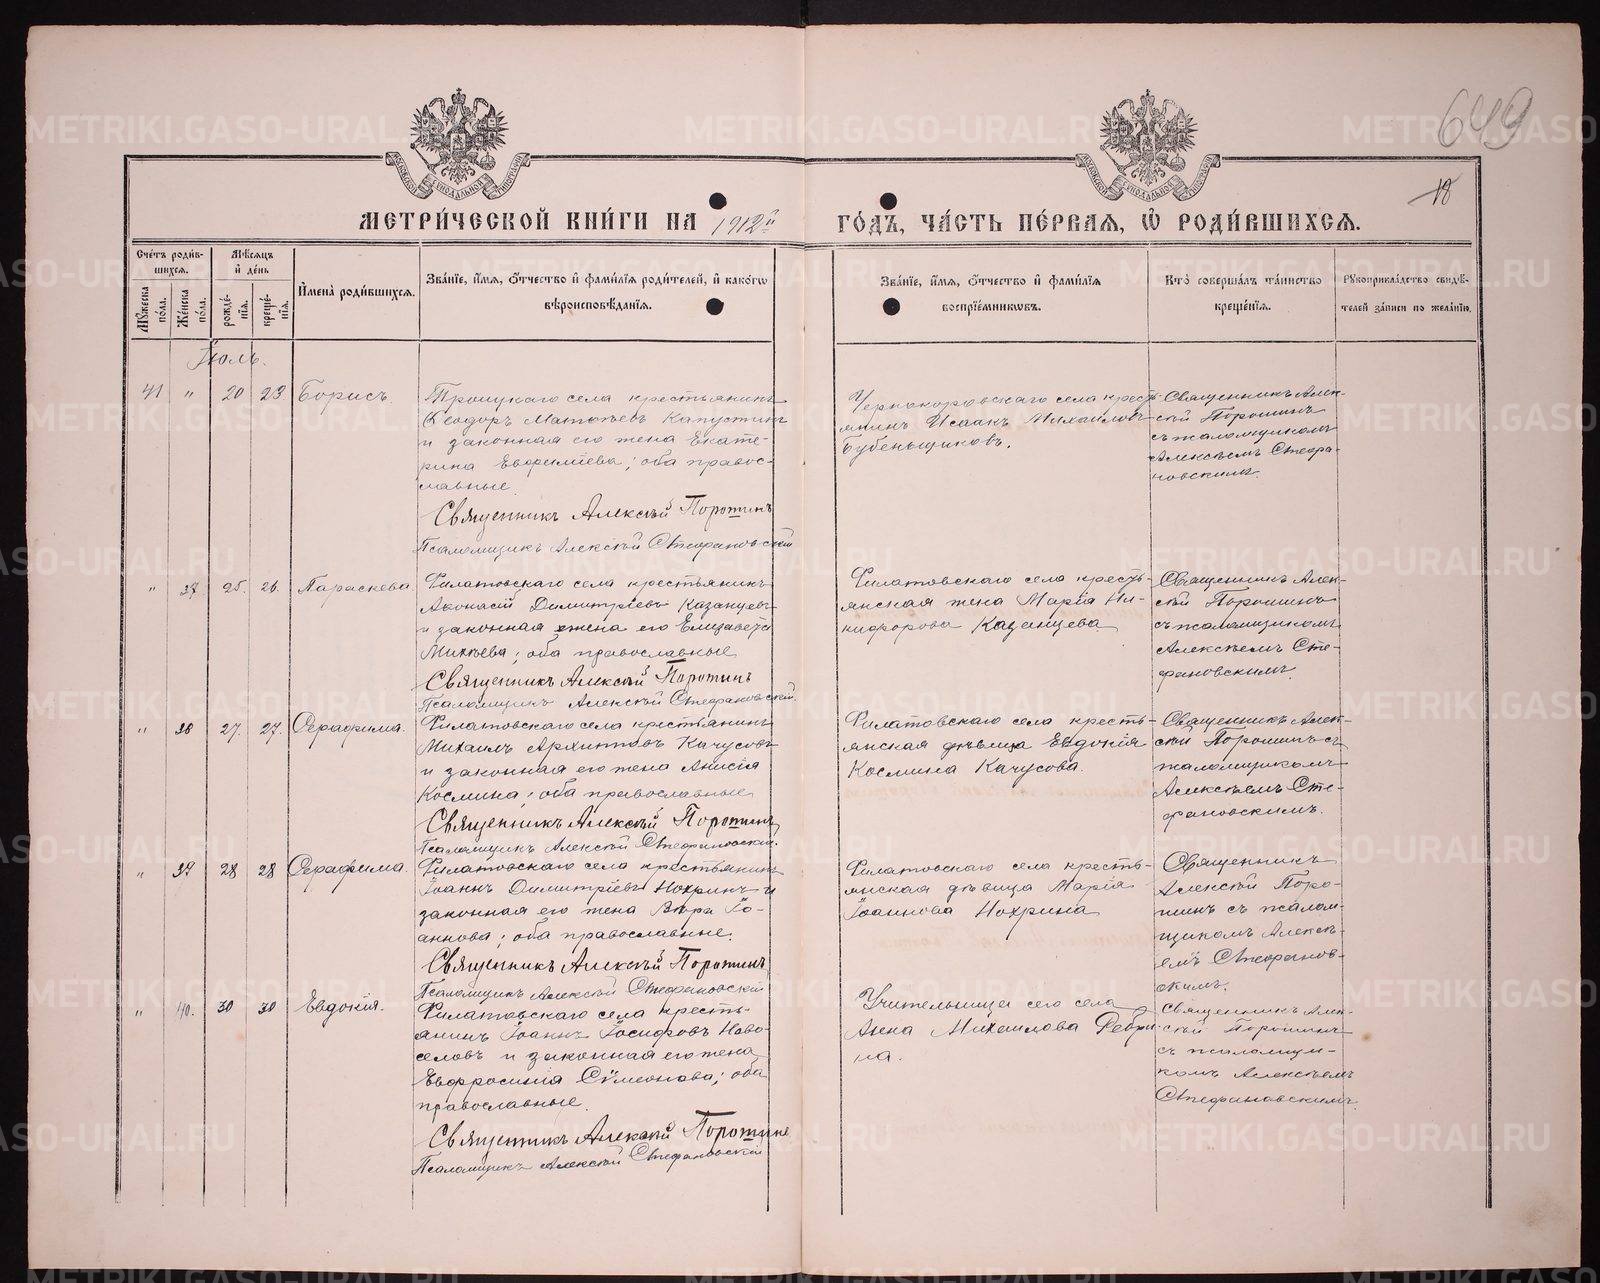 649
18
МЕТРИ́ЧЕСКОЙ КНИ́ГИ НА 1912й
ГО́ДЪ, ЧА́СТЬ ПЕ́РВАЯ, Ѽ РОДИ́ВШИХСЯ.
Сче́тъ роди́в-
шихся.
Му́жеска по́ла.
Же́нска по́ла.
Мѣ́сяцъ
и҆ де́нь
рожде́нія.
креще́нія.
И҆мена̀ роди́вшихся.
Зва́ніе, и҆́мя, ѻ҆́тчество и҆ фами́лія роди́телей, и҆ како́гѡ
вѣроисповѣ́данія.
Зва́ніе, и҆́мя, ѻ҆́тчество и҆ фами́лія
воспріе́мникѡвъ.
Кто̀ соверша́лъ та́инство
креще́нія.
Рꙋкоприкла́дство свидѣ́-
телей за́писи по жела́нію.
Іюль.
41 " 20 23 Борисъ.
Троицкаго села крестьянинъ
Ѳеодоръ Матѳеевъ Капустинъ
и законная его жена Екате-
рина Евфиміева; оба правос-
лавные.
Священникъ Алексѣй Порошинъ
Псаломщикъ Алексѣй Стефановскій
Чернокоровскаго села кресть-
янинъ Исаакъ Михаиловъ
Бубеньщиковъ.
Священникъ Алек-
сѣй Порошинъ
съ псаломщикомъ
Алексѣемъ Стефа-
новскимъ.
" 37 25. 26. Параскева
Филатовскаго села крестьянинъ
Аѳонасій Димитріевъ Казанцевъ
и законная жена его Елизавета
Михѣева; оба православные
Священникъ Алексѣй Порошинъ
Псаломщикъ Алексѣй Стефановскій.
Филатовскаго села кресть-
янская жена Марія Ни-
кифорова Казанцева
Священникъ Алек-
сѣй Порошинъ
съ псаломщикомъ
Алексѣемъ Сте-
фановскимъ.
" 38 27. 27. Серафима.
Филатовскаго села крестьянинъ
Михаилъ Архиповъ Качусовъ
и законная его жена Анисія
Космина; оба православные
Священникъ Алексѣй Порошинъ
Псаломщикъ Алексѣй Стефановскій.
Филатовскаго села кресть-
янская дѣвица Евдокія
Космина Качусова.
Священникъ Алек-
сѣй Порошинъ съ
псаломщикомъ
Алексѣемъ Сте-
фановскимъ.
" 39 28 28 Серафима.
Филатовскаго села крестьянинъ
Іоаннъ Димитріевъ Нохринъ и
законная его жена Вѣра Іо-
аннова; оба православные.
Священникъ Алексѣй Порошинъ
Псаломщикъ Алексѣй Стефановскій
Филатовскаго села кресть-
янская дѣвица Марія
Іоаннова Нохрина
Священникъ
Алексѣй Поро-
шинъ съ псалом-
щикомъ Алексѣ-
емъ Стефанов-
скимъ.
" 40. 30 30 Евдокія.
Филатовскаго села кресть-
янинъ Іоаннъ Іосифовъ Ново-
селовъ и законная его жена
Евфросинія Сѵмеонова; оба
православные.
Священникъ Алексѣй Порошинъ
Псаломщикъ Алексѣй Стефановскій
Учительница сего села
Анна Михаилова Ребри-
на.
Священникъ Алек-
сѣй Порошинъ
съ псаломщи-
комъ Алексѣемъ
Стефановскимъ.